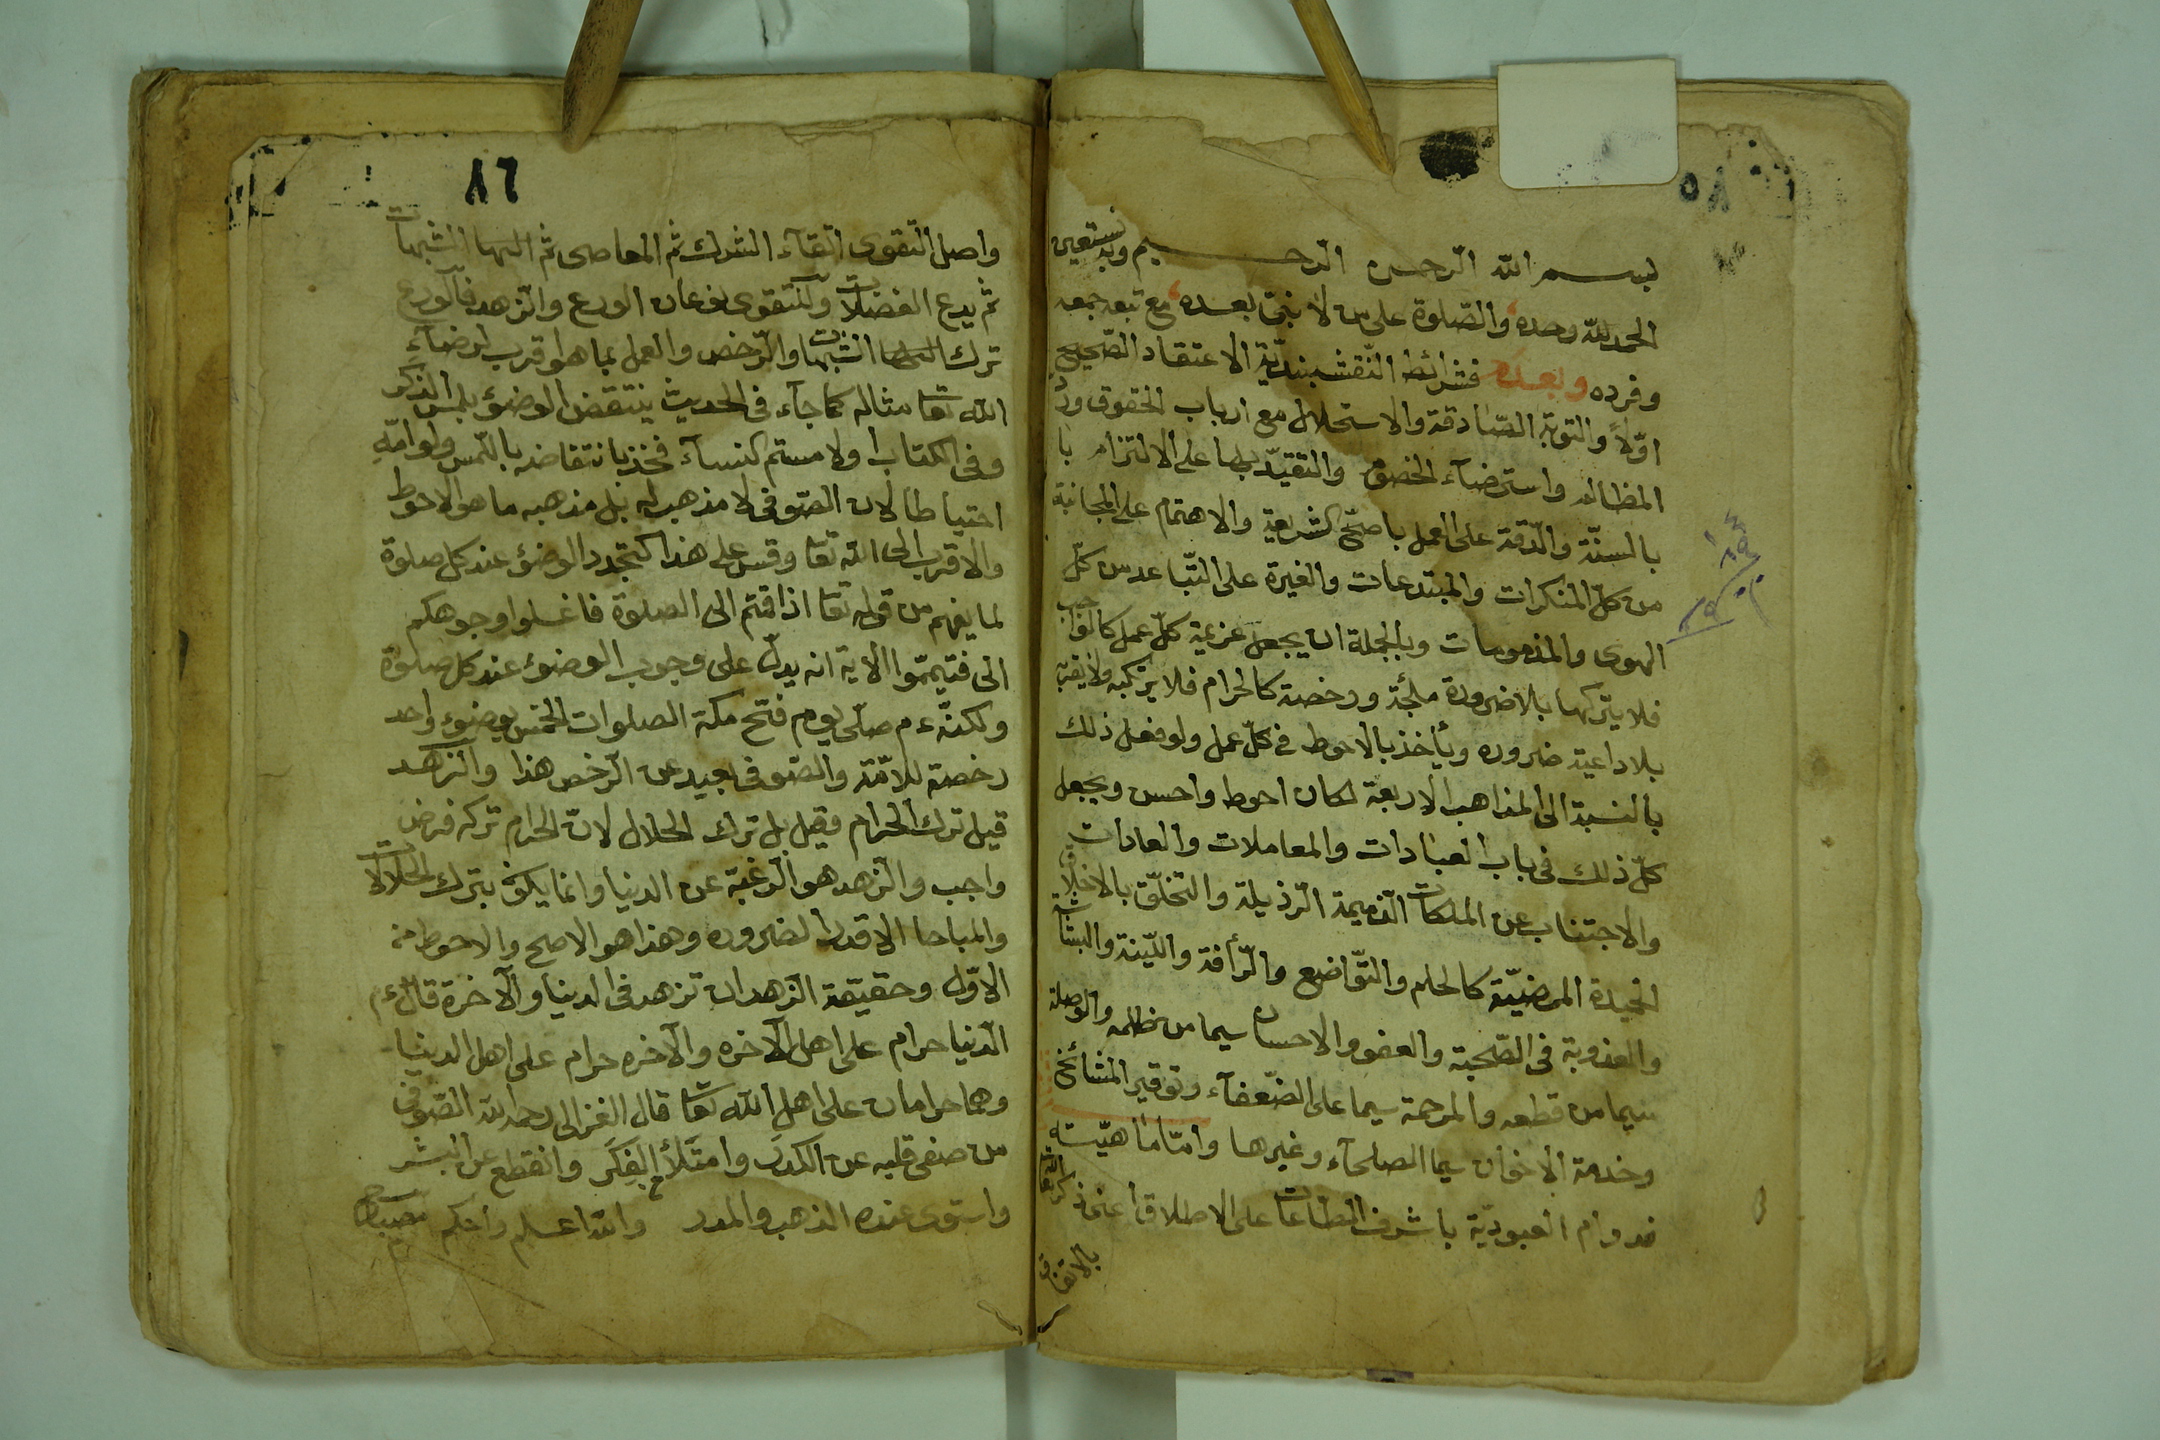 ٨٥
بسم الله الرحمن الرحيم وبه نستعين
الحمد لله وحده والصّلوة على من لا نبىّ بعده مع تبعه جمعه
وفرده وبعده فشرائط النّقشبنديّة الاعتقاد الصّحيح
اوّلاً والتوبة الصّادقة والاستحلال مع ارباب الحقوق وردّ
المظالم واسترضآء الخصوم والتقيّد بها على الالتزام با
بالسنّة والدّقة على العمل باصحّ الشريعة والاهتمام على المجانبة
من كلّ المنكرات والمبتدعات والغيرة على التّباعد من كلّ
الهوى والمذمومات وبالجملة ان يجعل عزيمة كلّ عمل كالواجب
فلا يتّركها بلا ضرورة ملجئة ورخصة كالحرام فلا يرتكبه ولا يقربه
بلا داعية ضروره ويأخذ بالاحوط فى كلّ عمل ولو فعل ذلك
بالنسبة الى المذاهب الاربعة لكان احوط واحسن ويجعل
كلّ ذلك فى باب العبادات والمعاملات والعادات
والاجتناب عن الملكات الذميمة الرّذيلة والتخلّق بالاخلاق
الحميدة المرضيّة كالحلم والتّواضع والرّأفة واللّينة والبشاشة
والعذوبة فى الصّحبة والعفو والاحسان سيما من ظلمه والوصلة
سيما من قطعه والمرحمة سيما على الضّعفآء وتوقير المشائخ
وخدمة الاخوان سيما الصلحآء وغيرها وامّا ماهيّته
فدوام العبوديّة باشرف الطاعات على الاطلاق اعنى ذكر الله تعا
بالاتفاق
٨٦
واصل التقوى اتقآء الشرك ثم المعاصى ثم اليها الشبهات
ثم يدع الفضلات وللتقوى نوعان الورع والزهد فالورع
ترك الشبهات والرّخص والعمل بما هو اقرب لرضآء
الله تعا مثاله كما جآء فى الحديث ينتقض الوضوء بلمس الذكر
وفى الكتاب اولامستم النسآء فخذ بانتقاضه باللّمس ولو امّه
احتياطا لان الصّوفى لا مذهب له بل مذهبه ما هو الاحوط
والاقرب الى الله تعا وقس على هذا كتجدد الوضؤ عند كل صلوة
لما يفهم من قوله تعا اذا قمتم الى الصلوة فاغسلوا وجوهكم
الى فتيمّموا الاية انه يدلّ على وجوب الوضوء عند كل صلوة
ولكنّه ءم صلّى يوم فتح مكة الصلوات الخمس بوضوء واحد
رخصة للامّة والصّوفى بعيد عن الرّخص هذا والزهد
قيل ترك الحرام وقيل بل ترك الحلال لانّ الحرام تركه فرض
واجب والزهد هو الرغبة عن الدنيا وانما يكون بترك الحلالات
والمباحا الا قدر الضروره وهذا هو الاصح والاحوط من
الاوّل وحقيقة الزهد ان تزهد فى الدنيا والآخرة قال ءم
الدّنيا حرام على اهل الآخره والآخره حرام على اهل الدينا
وهما حرامان على اهل الله تعا قال الغزالى رحمه الله الصّوفى
من صفى قلبه عن الكدر وامتلأ بالفكر وانقطع عن البشر
واستوى عنده الذهب والمدر والله اعلم واحكم